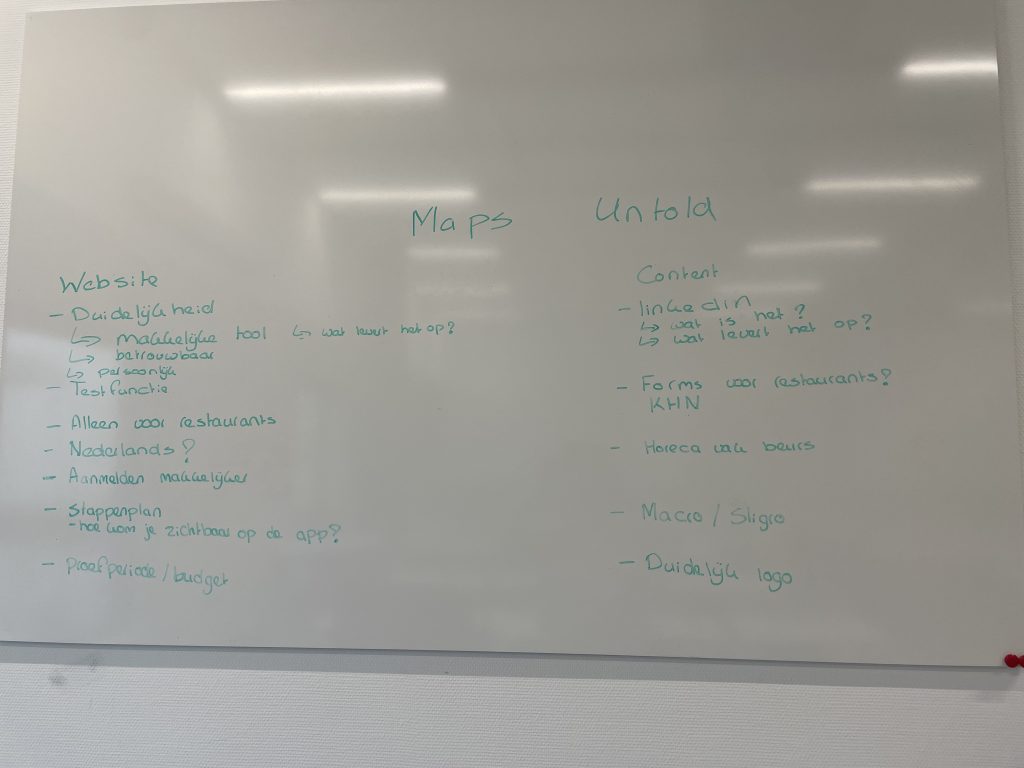 Maps Untold
Website
- Duidelijkheid
↳ makkelijke tool ↳ wat levert het op?
↳ betrouwbaar
↳ persoonlijk
- Testfunctie
- Alleen voor restaurants
- Nederlands?
- Aanmelden makkelijker
- Stappenplan
- hoe kom je zichtbaar op de app?
- Proefperiode / budget
Content
- linkedin
↳ wat is het?
↳ wat levert het op?
- Forms voor restaurants?
KHN
- Horeca vak beurs
- Macro / Sligro
- Duidelijk logo